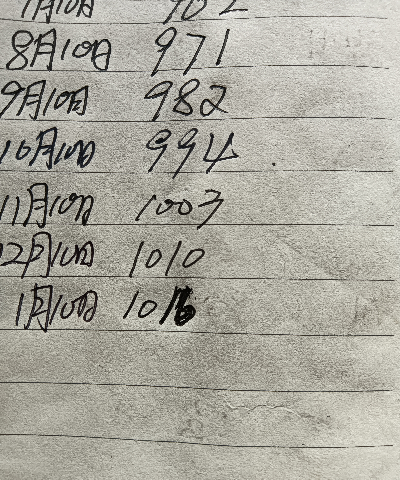 8月10日 971
9月10日 982
10月10日 994
11月10日 1003
12月10日 1010
1月10日 1016